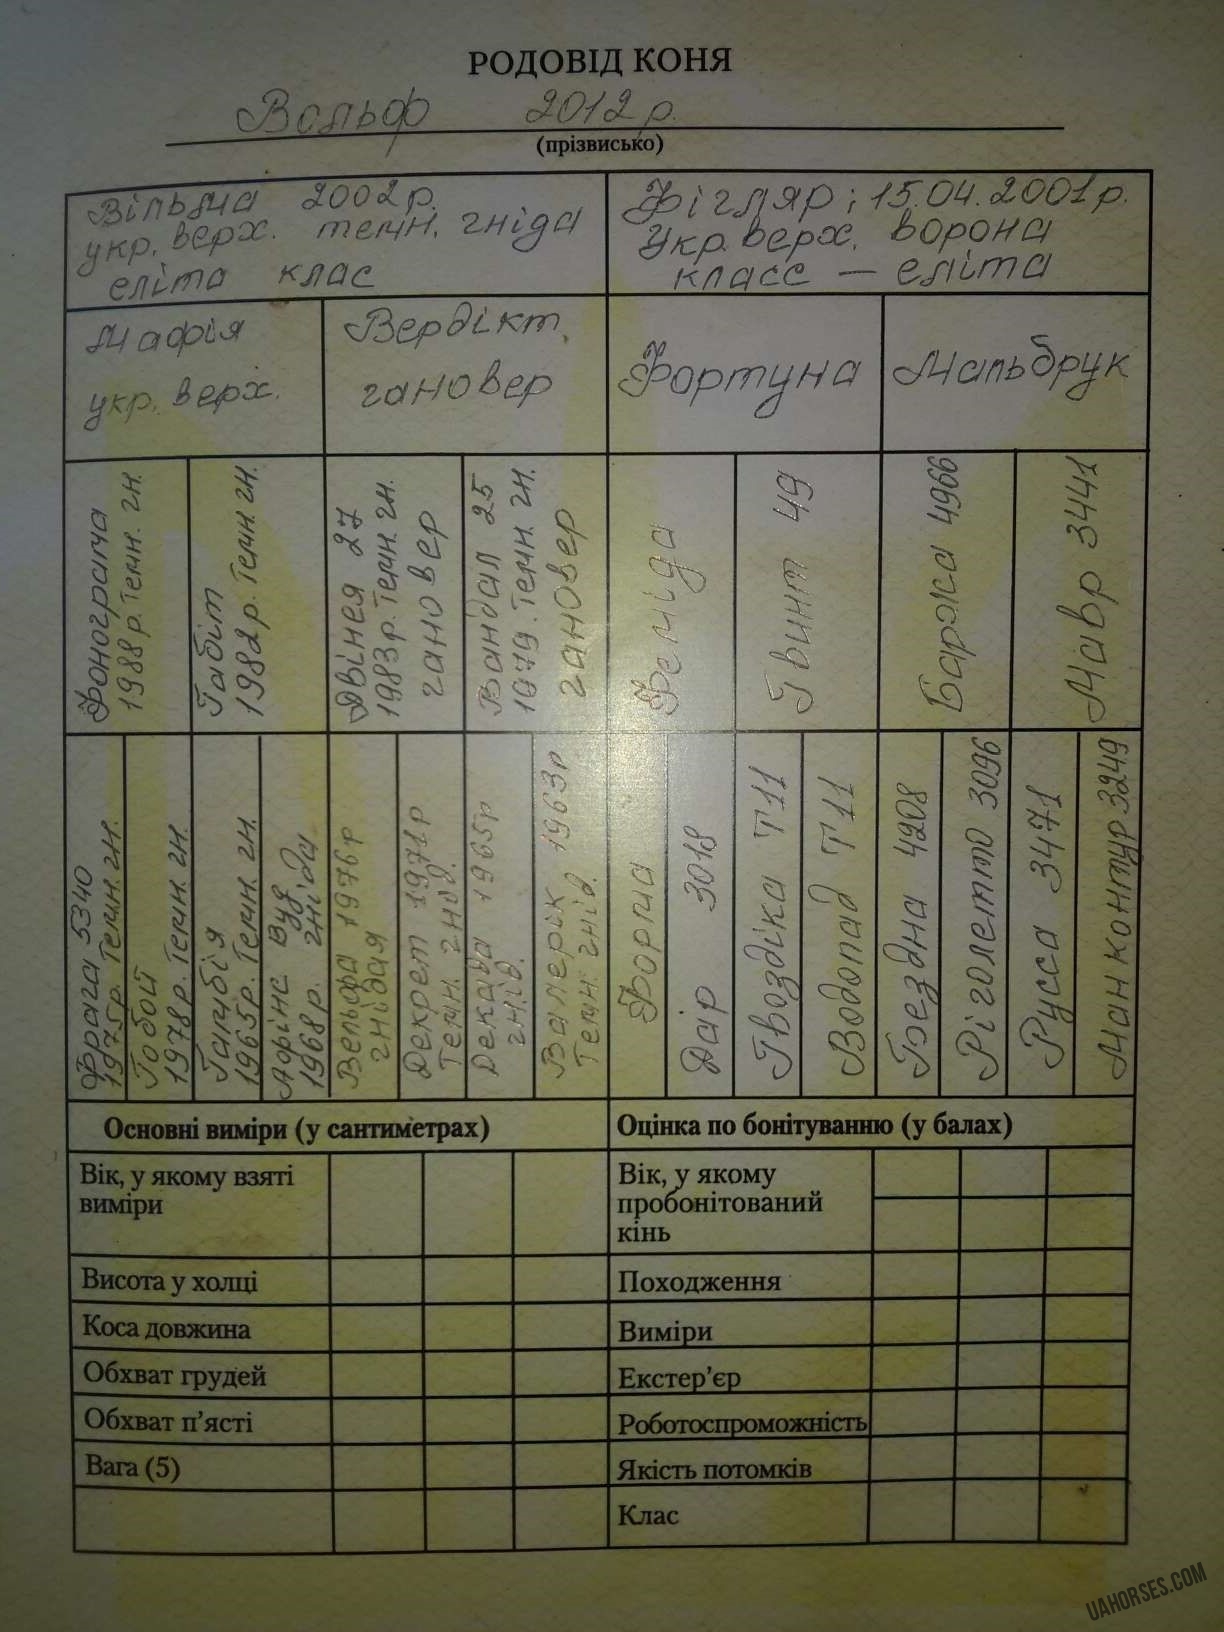 РОДОВІД КОНЯ
Вольф 2012 р.
(прізвисько)
Вільма 2002 р.
укр. верх. темн. гніда
еліта клас
Фігляр; 15.04.2001 р.
Укр. верх. ворона
класс — еліта
Мафія
укр. верх.
Вердікт
гановер
Фортуна
Мальбрук
Фонограма
1988 р. Темн. гн.
Габіт
1982 р. Темн. гн.
Двінея 27
1983 р. Темн. гн.
гановер
Вандал 25
1979. Темн. гн.
гановер
Феміда
Гвинт 49
Баржа 4966
Мавр 3441
Фрага 5340
1975 р. Темн. гн.
Гобой
1978 р. Темн. гн.
Гамбія
1965 р. Темн. гн.
Лорінс Вуд
1968 р. гніда
Вельфа 1976 р
гнідая
Декрет 1971 р
Темн. гнід.
Декада 1965 р
гнід.
Валерік 1963 р
Темн. гнід.
Форма
Дар 3018
Гвоздіка Т11
Водопад Т11
Бездна 4208
Ріголетто 3096
Русса 3471
Манконтур 3249
Основні виміри (у сантиметрах)
Оцінка по бонітуванню (у балах)
Вік, у якому взяті
виміри
Вік, у якому
пробонітований
кінь
Висота у холці
Походження
Коса довжина
Виміри
Обхват грудей
Екстер’єр
Обхват п’ясті
Роботоспроможність
Вага (5)
Якість потомків
Клас
UAHORSES.COM